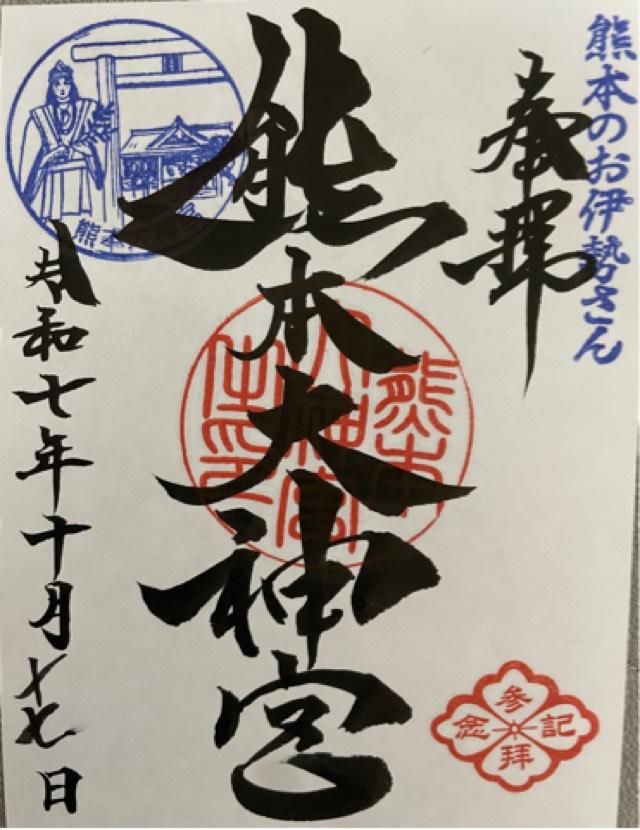 熊本のお伊勢さん
奉拝
熊本大神宮
熊本大神宮
参拝記念
令和七年十月十七日